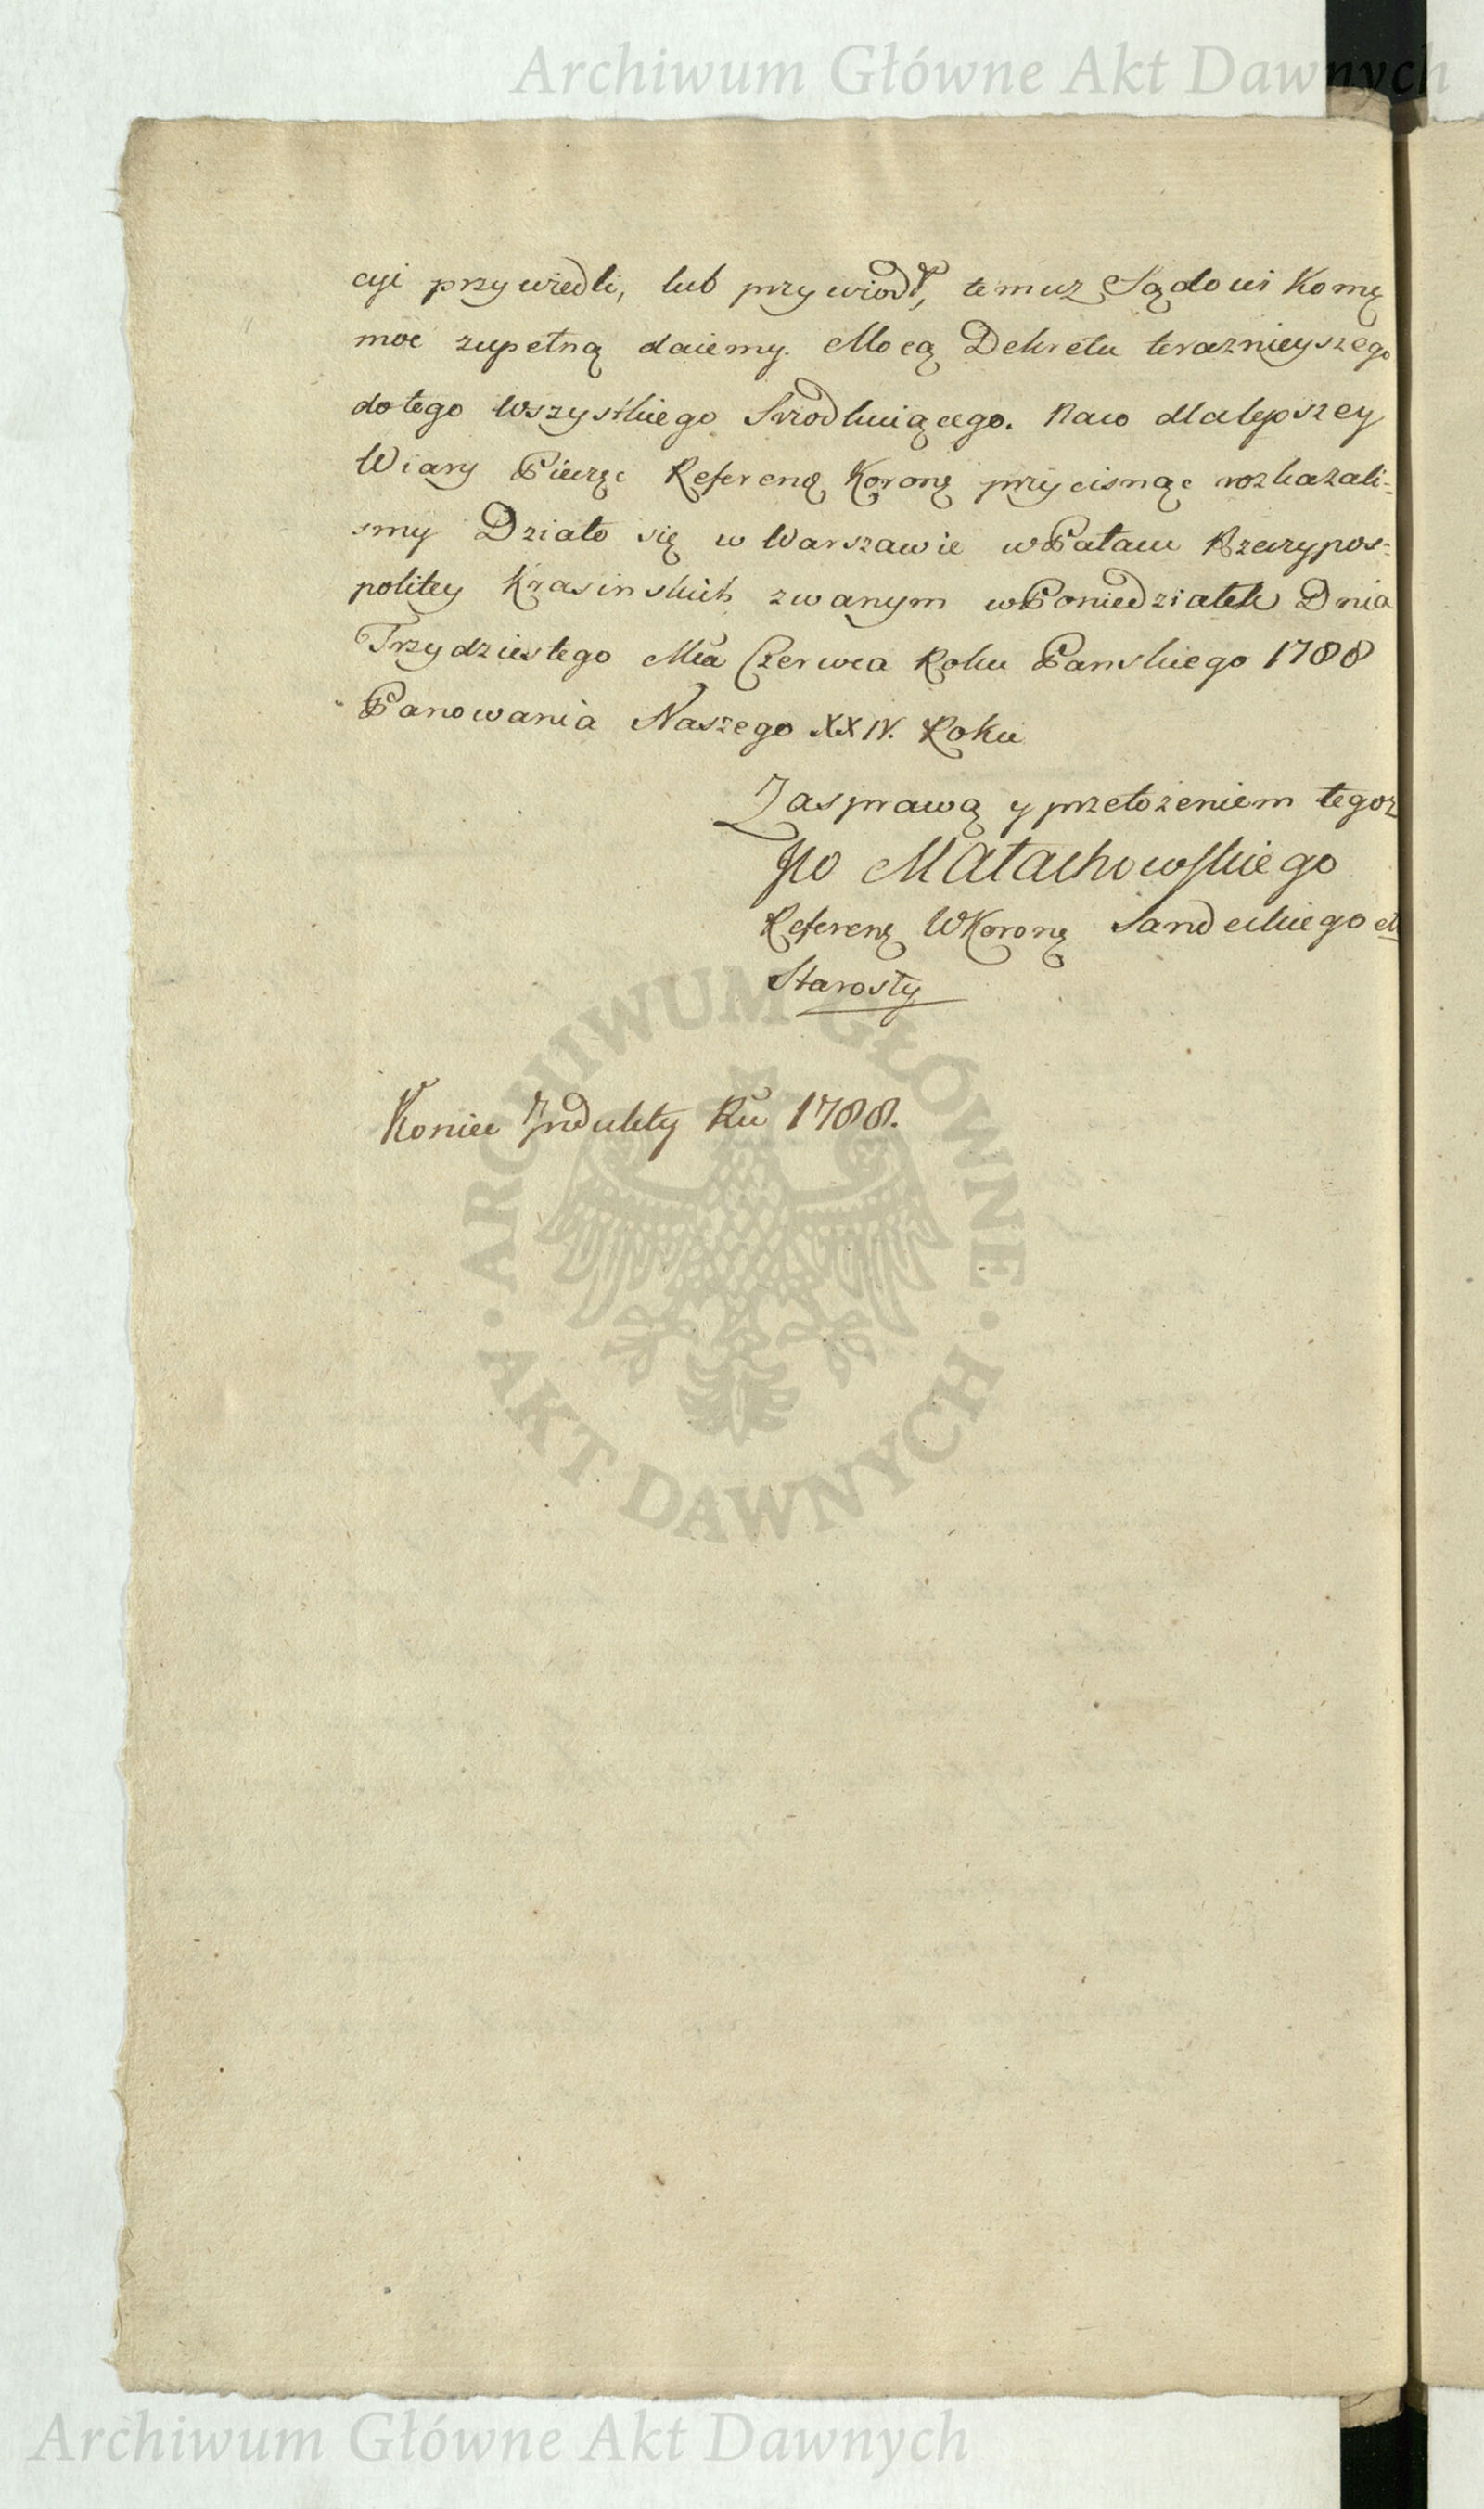 Archiwum Główne Akt Dawnych
cyi przywiedli, lub przywiodł, temuz Sądowi Komę
moc zupełną daiemy. Mocą Dekretu teraznieyszego
do tego wszystkiego Srzodkuiącego. Naco dla lepszey
Wiary Pieczęc Referenę Koronę przycisnąc rozkazali=
smy Działo się w Warszawie w Pałacu Rzeczypos=
politey Krasinskich zwanym w Poniedziałek Dnia
Trzydziestego Mca Czerwca Roku Panskiego 1788
Panowania Naszego XXIV. Roku
Za sprawą y przełozeniem tegoz
Jго Małachowskiego
Referenę WKoronę Sandeckiego et
Starosty
Koniec Indukty Ru 1788.
ARCHIWUM GŁÓWNE · AKT DAWNYCH ·
Archiwum Główne Akt Dawnych